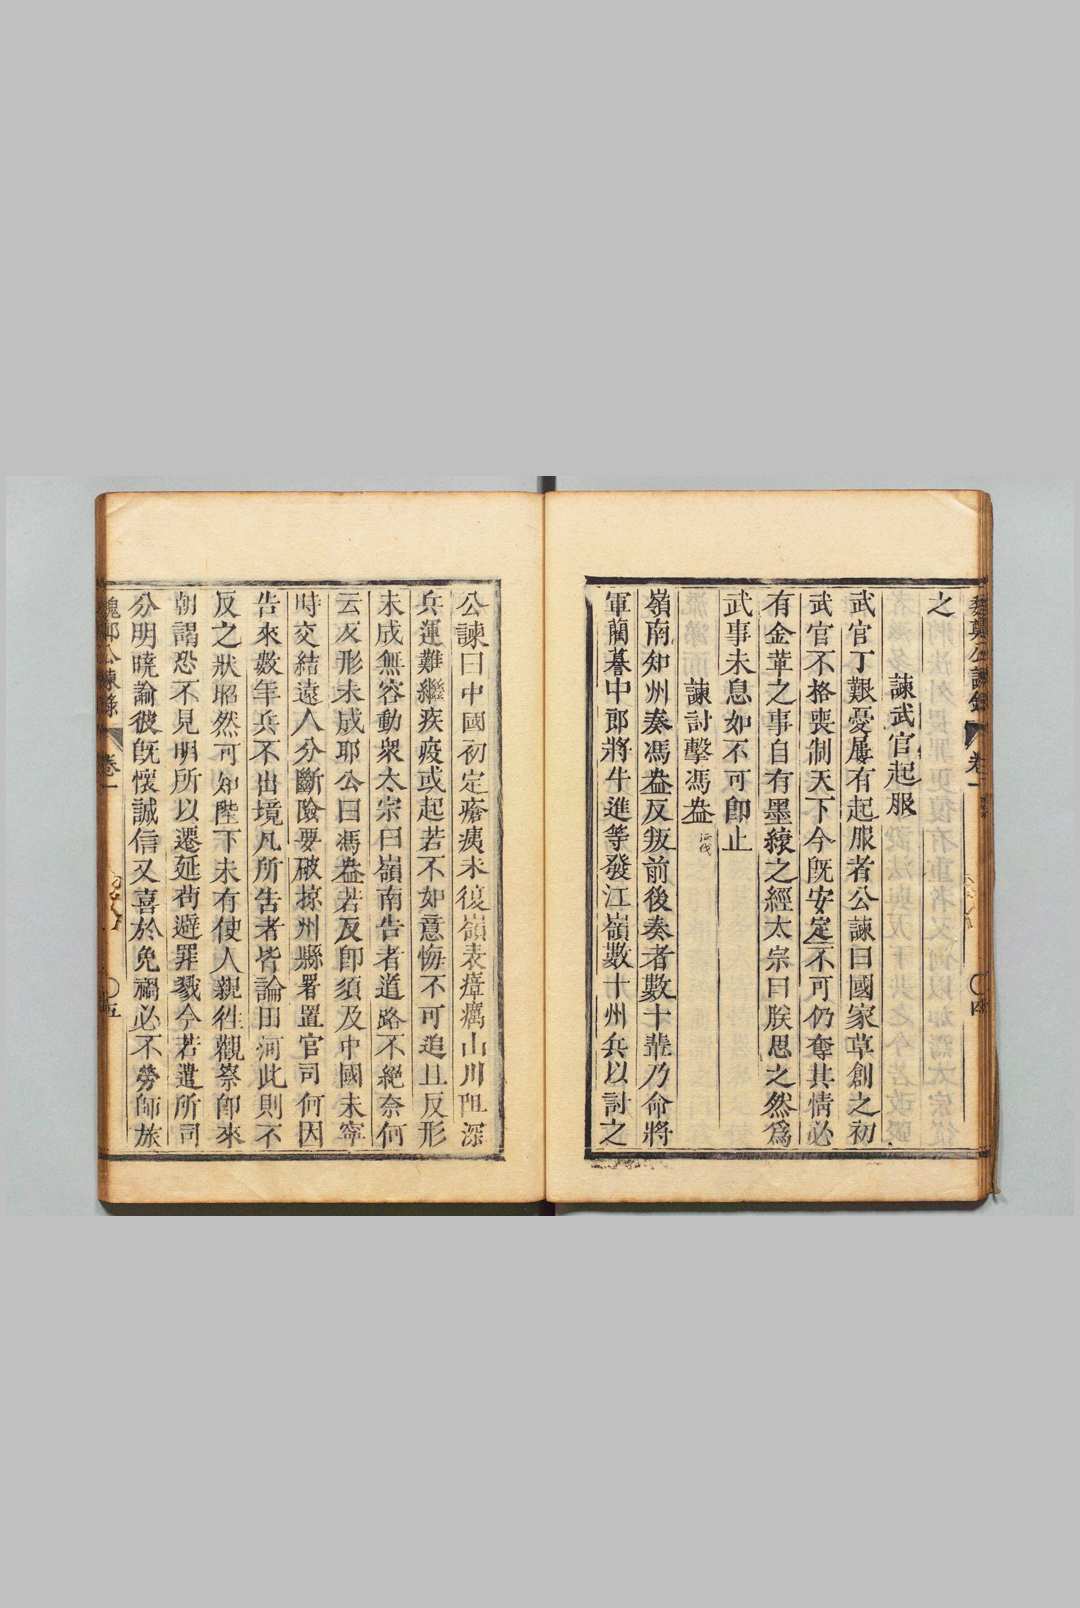 之
諫武官起服
武官丁艱憂屢有起服者公諫曰國家草創之初
武官不格喪制天下今既安定不可仍奪其情必
有金革之事自有墨縗之經太宗曰朕思之然爲
武事未息如不可卽止
諫討擊馮盎
嶺南知州奏馮盎反叛前後奏者數十輩乃命將
軍藺謩中郎將牛進等發江嶺數十州兵以討之
公諫曰中國初定瘡痍未復嶺表瘴癘山川阻深
兵運難繼疾疫或起若不如意悔不可追且反形
未成無容動衆太宗曰嶺南告者道路不絕奈何
云反形未成耶公曰馮盎若反卽須及中國未寧
時交結遠人分斷險要破掠州縣署置官司何因
告來數年兵不出境凡所告者皆論田河此則不
反之狀昭然可知陛下未有使人親往觀察卽來
朝謁恐不見明所以遷延苟避罪戮今若遣所司
分明曉諭彼旣懷誠信又喜於免禍必不勞師旅
魏鄭公諫錄 卷一 五